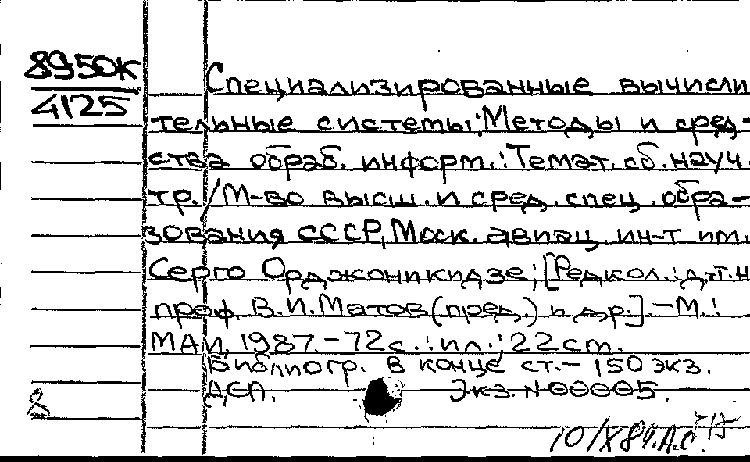 8950К
4125
Специализированные вычисли
тельные системы: Методы и сред-
ства обраб. информ.: Темат. сб. науч.
тр. / М-во высш. и сред. спец. обра-
зования СССР, Моск. авиац. ин-т им.
Серго Орджоникидзе; [Редкол.: д.т.н
проф. В.И. Матов (пред.) и др.]. - М.:
МАИ, 1987. - 72 с.: ил.; 22 cm.
Библиогр. в конце ст. - 150 экз.
ДСП. Экз. N 00005.
8
10/X 89. А.С.